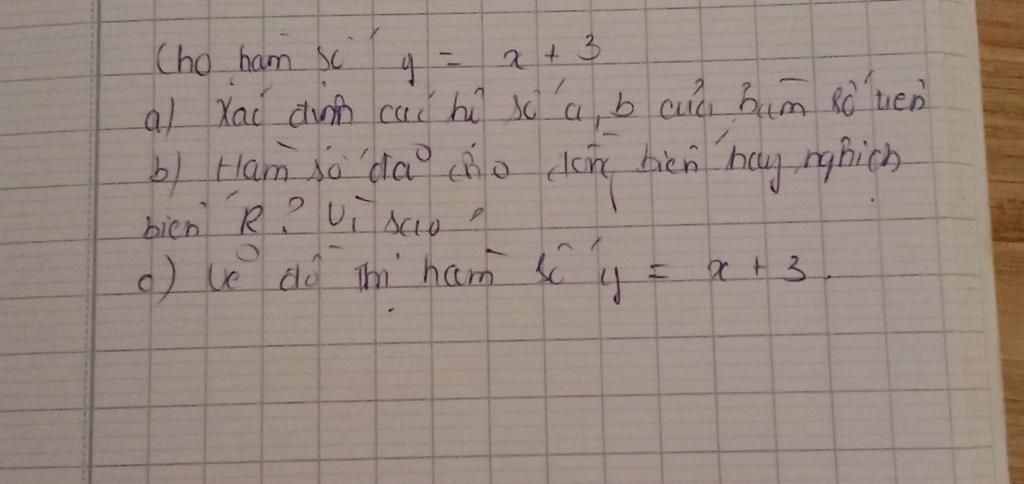 Cho hàm số y = x + 3
a) Xác định các hệ số a, b của hàm số trên
b) Hàm số đã cho đồng biến hay nghịch
biến R? Vì sao?
c) Vẽ đồ thị hàm số y = x + 3.